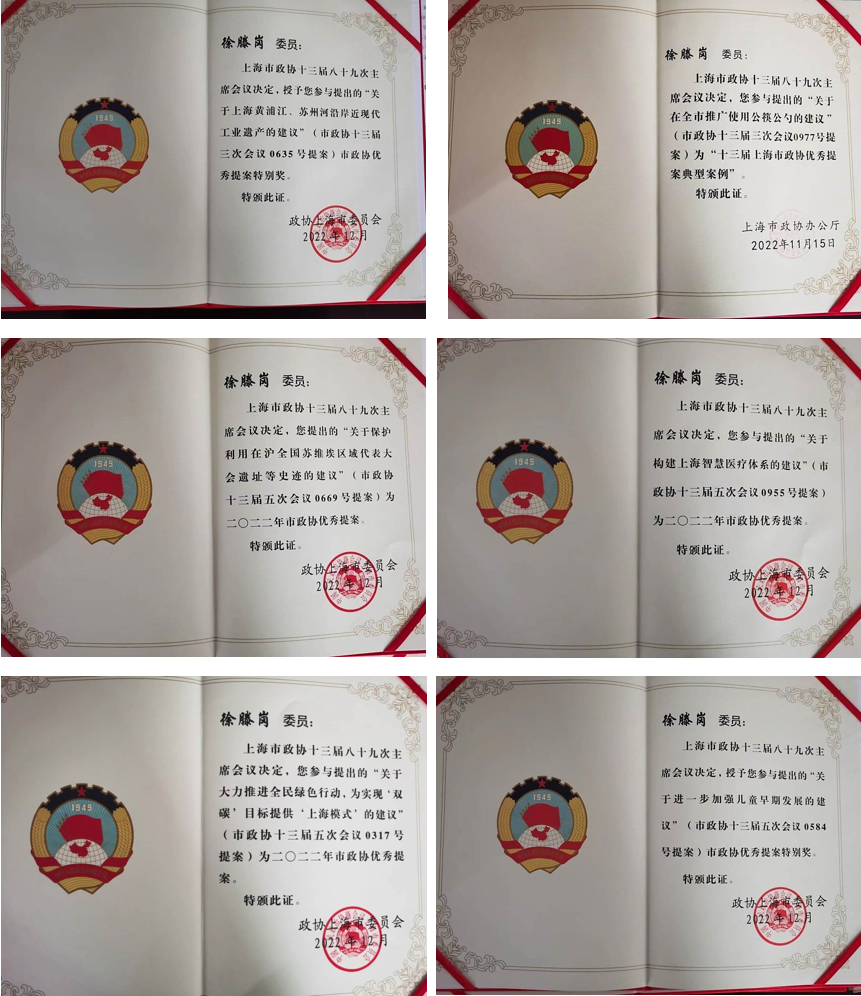 徐滕岗 委员：
上海市政协十三届八十九次主
席会议决定，授予您参与提出的“关
于上海黄浦江、苏州河沿岸近现代
工业遗产的建议”（市政协十三届
三次会议0635号提案）市政协优
秀提案特别奖。
特颁此证。
政协上海市委员会
2022年12月
1949
徐滕岗 委员：
上海市政协十三届八十九次主
席会议决定，您参与提出的“关于
在全市推广使用公筷公勺的建议”
（市政协十三届三次会议0977号提
案）为“十三届上海市政协优秀提
案典型案例”。
特颁此证。
上海市政协办公厅
2022年11月15日
1949
徐滕岗 委员：
上海市政协十三届八十九次主
席会议决定，您提出的“关于保护
利用在沪全国苏维埃区域代表大
会遗址等史迹的建议”（市政协
十三届五次会议0669号提案）为
二〇二二年市政协优秀提案。
特颁此证。
政协上海市委员会
2022年12月
1949
徐滕岗 委员：
上海市政协十三届八十九次主
席会议决定，您参与提出的“关于
构建上海智慧医疗体系的建议”（市
政协十三届五次会议0955号提案）
为二〇二二年市政协优秀提案。
特颁此证。
政协上海市委员会
2022年12月
1949
徐滕岗 委员：
上海市政协十三届八十九次主
席会议决定，您参与提出的“关于
大力推进全民绿色行动，为实现‘双
碳’目标提供‘上海模式’的建议”
（市政协十三届五次会议0317号
提案）为二〇二二年市政协优秀提
案。
特颁此证。
政协上海市委员会
2022年12月
1949
徐滕岗 委员：
上海市政协十三届八十九次主
席会议决定，授予您参与提出的“关
于进一步加强儿童早期发展的建
议”（市政协十三届五次会议0584
号提案）市政协优秀提案特别奖。
特颁此证。
政协上海市委员会
2022年12月
1949